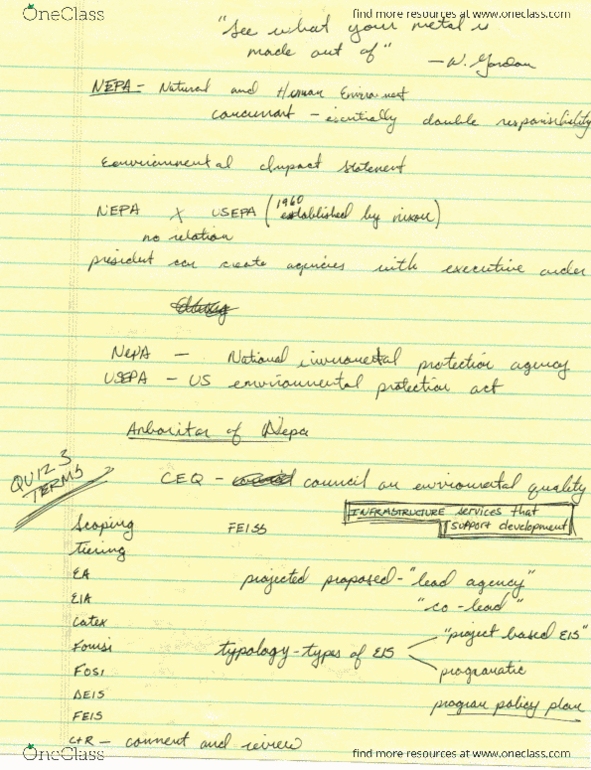 OneClass
find more resources at www.oneclass.com
"See what your metal is
made out of"
— W. Gordon
NEPA - Natural and Human Enviroment
concurrant - essentially double responsibility
Enviornmental Impact Statement
NEPA X USEPA (1960 established by nixon)
no relation
president can create agencies with executive order
NePA — National inviromental protection agency
USEPA - US environmental protection act
Arboritor of Nepa
QUIZ 3
TERMS
CEQ - council on enviromental quality
INFRASTRUCTURE services that
support development
Scoping FEISS
Tiering
EA projected proposed - "lead agency"
EIA "co-lead"
Catex
"project based EIS"
Fonsi typology - types of EIS
FOSI programatic
DEIS
FEIS program policy plan
C+R - comment and review
OneClass
find more resources at www.oneclass.com